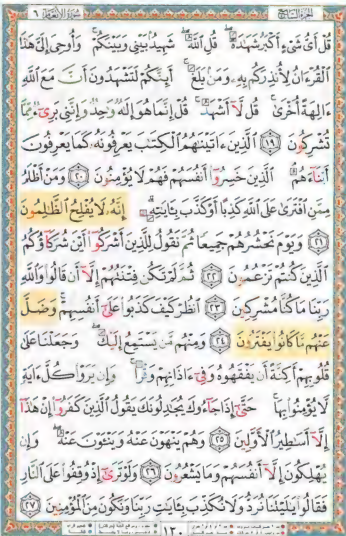 الجزء السابع سورة الأنعام ٦
قُلْ أَىُّ شَىْءٍ أَكْبَرُ شَهَٰدَةً ۖ قُلِ ٱللَّهُ ۖ شَهِيدٌۢ بَيْنِى وَبَيْنَكُمْ ۚ وَأُوحِىَ إِلَىَّ هَٰذَا
ٱلْقُرْءَانُ لِأُنذِرَكُم بِهِۦ وَمَنۢ بَلَغَ ۚ أَئِنَّكُمْ لَتَشْهَدُونَ أَنَّ مَعَ ٱللَّهِ
ءَالِهَةً أُخْرَىٰ ۚ قُل لَّآ أَشْهَدُ ۚ قُلْ إِنَّمَا هُوَ إِلَٰهٌ وَٰحِدٌ وَإِنَّنِى بَرِىٓءٌ مِّمَّا
تُشْرِكُونَ ١٩ ٱلَّذِينَ ءَاتَيْنَٰهُمُ ٱلْكِتَٰبَ يَعْرِفُونَهُۥ كَمَا يَعْرِفُونَ
أَبْنَآءَهُمُ ۘ ٱلَّذِينَ خَسِرُوٓا۟ أَنفُسَهُمْ فَهُمْ لَا يُؤْمِنُونَ ٢٠ وَمَنْ أَظْلَمُ
مِمَّنِ ٱفْتَرَىٰ عَلَى ٱللَّهِ كَذِبًا أَوْ كَذَّبَ بِـَٔايَٰتِهِۦٓ ۗ إِنَّهُۥ لَا يُفْلِحُ ٱلظَّٰلِمُونَ
٢١ وَيَوْمَ نَحْشُرُهُمْ جَمِيعًا ثُمَّ نَقُولُ لِلَّذِينَ أَشْرَكُوٓا۟ أَيْنَ شُرَكَآؤُكُمُ
ٱلَّذِينَ كُنتُمْ تَزْعُمُونَ ٢٢ ثُمَّ لَمْ تَكُن فِتْنَتُهُمْ إِلَّآ أَن قَالُوا۟ وَٱللَّهِ
رَبِّنَا مَا كُنَّا مُشْرِكِينَ ٢٣ ٱنظُرْ كَيْفَ كَذَبُوا۟ عَلَىٰٓ أَنفُسِهِمْ ۚ وَضَلَّ
عَنْهُم مَّا كَانُوا۟ يَفْتَرُونَ ٢٤ وَمِنْهُم مَّن يَسْتَمِعُ إِلَيْكَ ۖ وَجَعَلْنَا عَلَىٰ
قُلُوبِهِمْ أَكِنَّةً أَن يَفْقَهُوهُ وَفِىٓ ءَاذَانِهِمْ وَقْرًا ۚ وَإِن يَرَوْا۟ كُلَّ ءَايَةٍ
لَّا يُؤْمِنُوا۟ بِهَا ۚ حَتَّىٰٓ إِذَا جَآءُوكَ يُجَٰدِلُونَكَ يَقُولُ ٱلَّذِينَ كَفَرُوٓا۟ إِنْ هَٰذَآ
إِلَّآ أَسَٰطِيرُ ٱلْأَوَّلِينَ ٢٥ وَهُمْ يَنْهَوْنَ عَنْهُ وَيَنْـَٔوْنَ عَنْهُ ۖ وَإِن
يُهْلِكُونَ إِلَّآ أَنفُسَهُمْ وَمَا يَشْعُرُونَ ٢٦ وَلَوْ تَرَىٰٓ إِذْ وُقِفُوا۟ عَلَى ٱلنَّارِ
فَقَالُوا۟ يَٰلَيْتَنَا نُرَدُّ وَلَا نُكَذِّبَ بِـَٔايَٰتِ رَبِّنَا وَنَكُونَ مِنَ ٱلْمُؤْمِنِينَ ٢٧
١٣٠